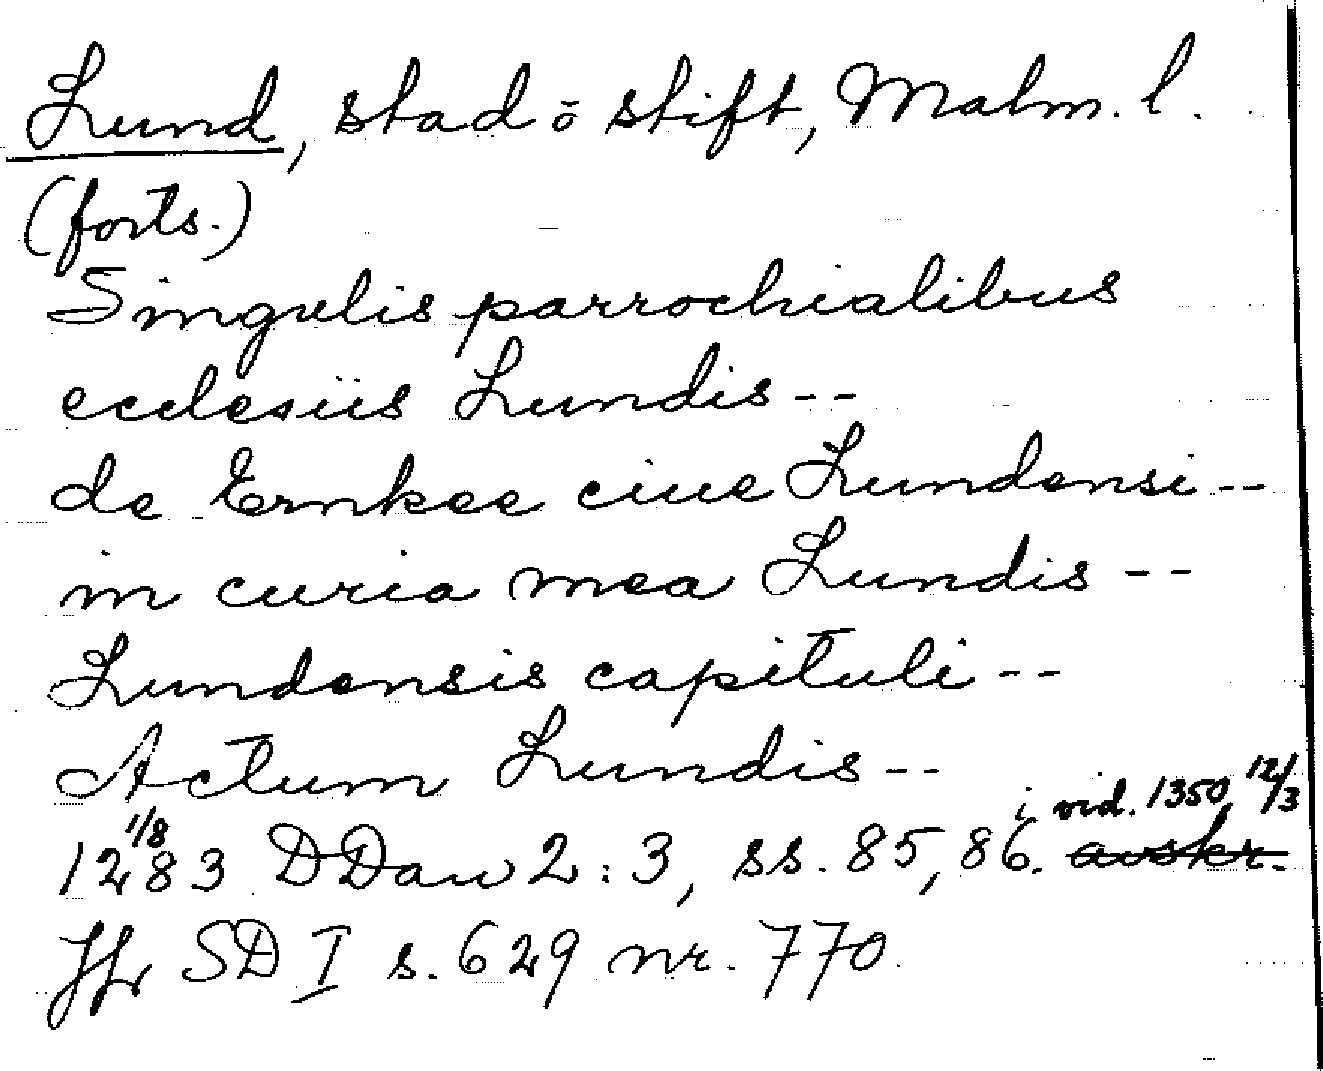 Lund, stad ō stift, Malm. l.
(forts.)
Singulis parrochialibus
ecclesiis Lundis --
de Ernkee ciue Lundensi --
in curia mea Lundis --
Lundensis capituli --
Actum Lundis --
i vid. 1350 12/3
1283 1/8 DDan 2:3, ss. 85, 86. avskr.
Jfr SD I s. 629 nr. 770.